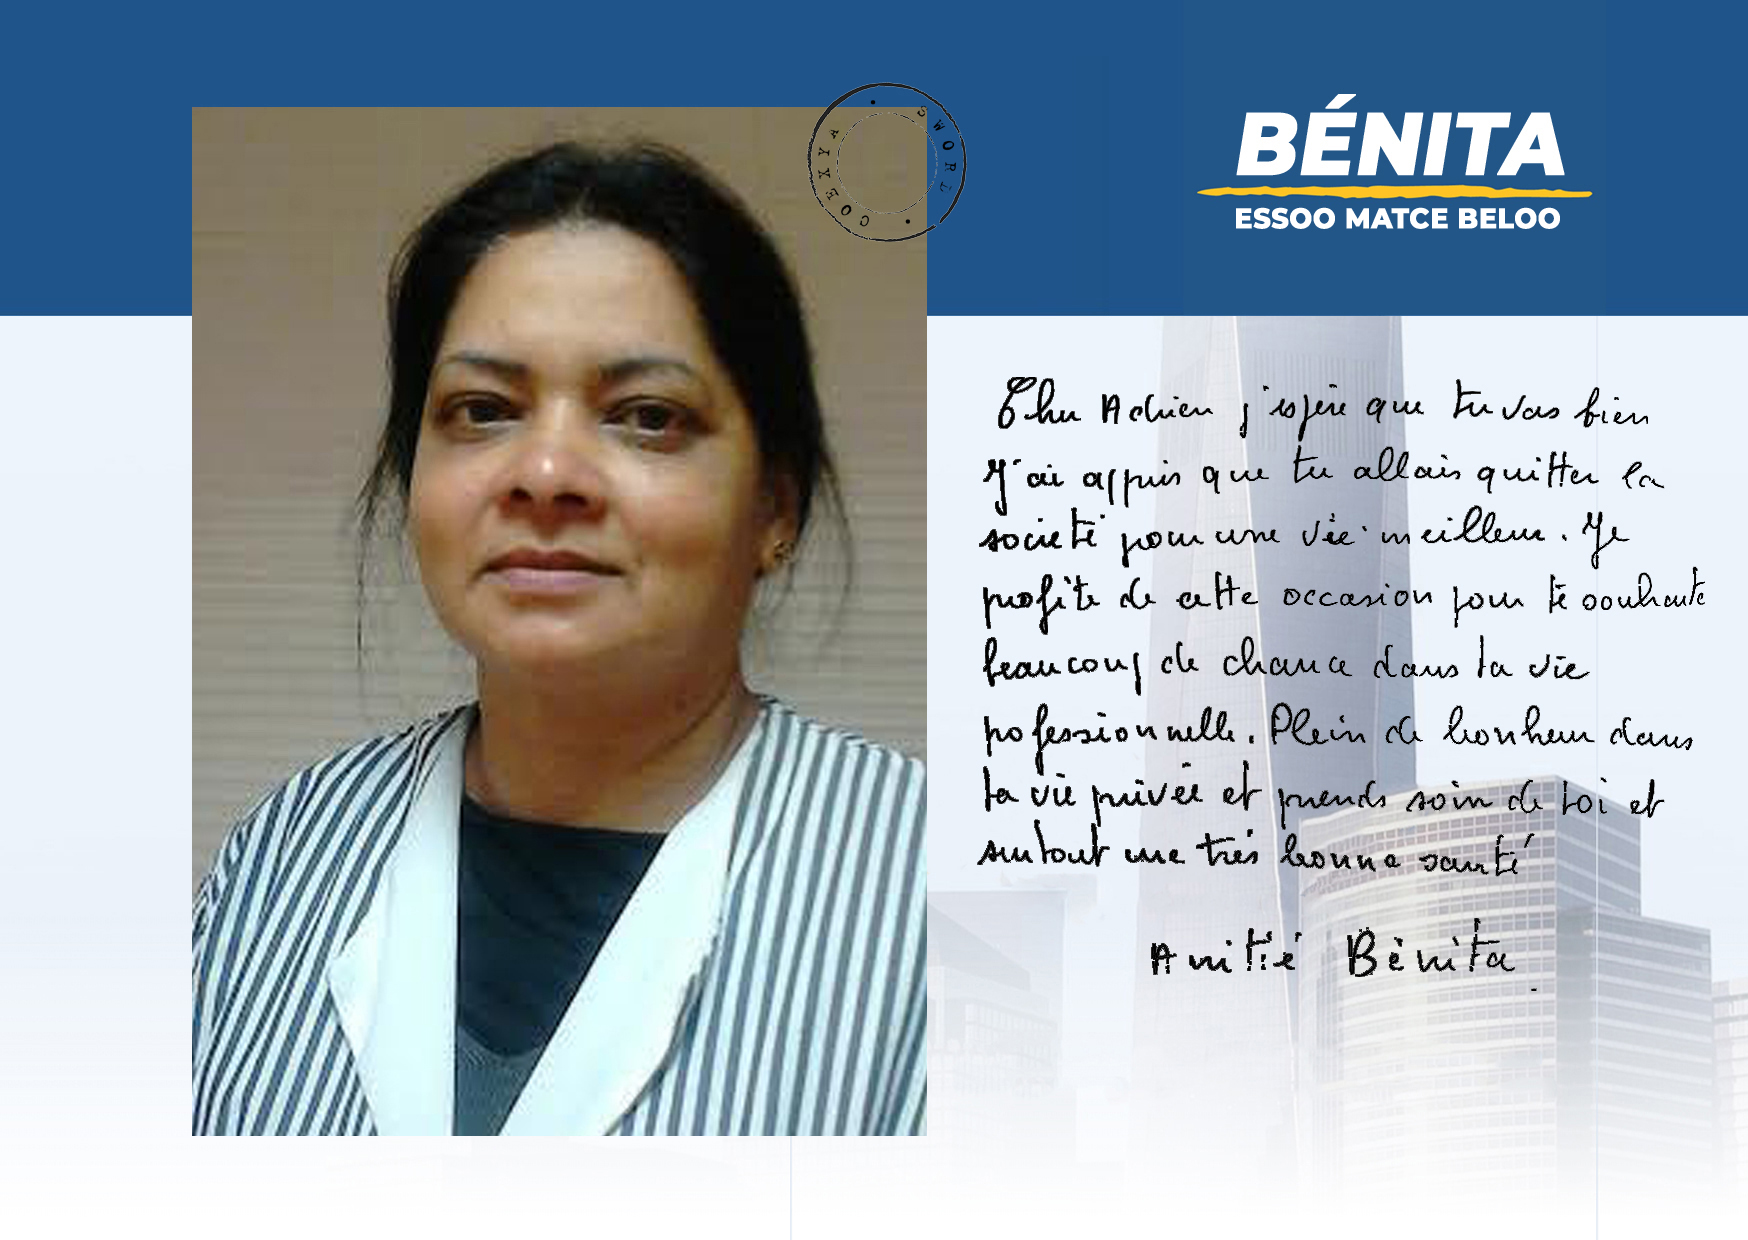 COEXYA • SWORD •
BÉNITA
ESSOO MATCE BELOO
Cher Adrien j'espère que tu vas bien
J'ai appris que tu allais quitter la
societé pour une vie meilleure. Je
profite de cette occasion pour te souhaite
beaucoup de chance dans ta vie
pofessionnelle. Plein de bonheur dans
ta vie privée et prends soin de toi et
surtout une très bonne santé
Amitié Bénita